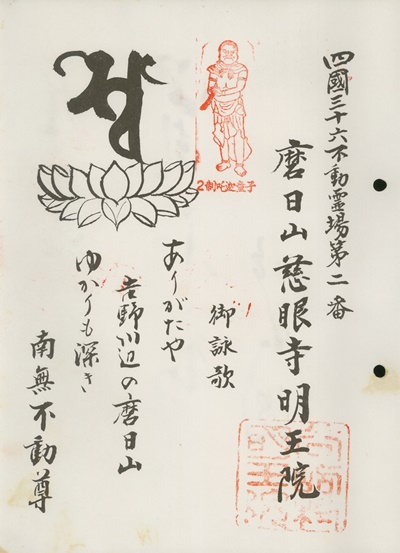 四國三十六不動霊場第二番
磨日山慈眼寺明王院
2制吒迦童子
御詠歌
ありがたや
吉野川辺の磨日山
ゆかりも深き
南無不動尊